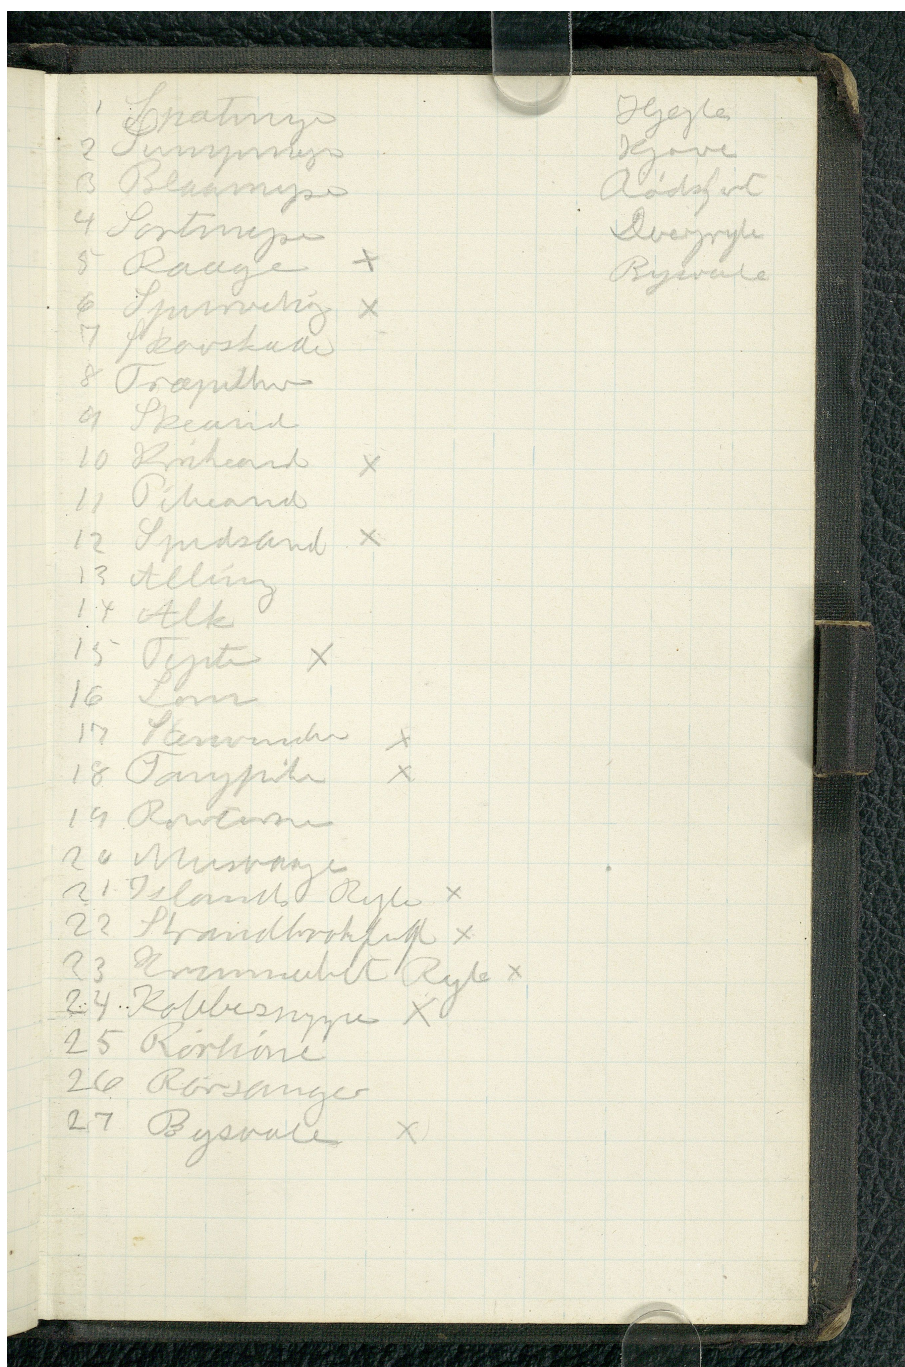 1 Spætmejse
2 Sumpmejse
3 Blaamejse
4 Sortmejse
5 Raage x
6 Spurvehög x
7 Skovskade
8 Træpiber
9 Skeand
10 Krikand x
11 Pibeand
12 Spidsand x
13 Alling
14 Alk
15 Tejste x
16 Lom
17 Stenvender x
18 Tangpiber x
19
20 Musvaage
21 Islands Ryle x
22 Strandbrokfugl x
23 Krumnæbet Ryle x
24 Kobbersneppe x
25 Rörhöne
26 Rörsanger
27 Bysvale x
Hjejle
Kjove
Dværgryle
Bysvale